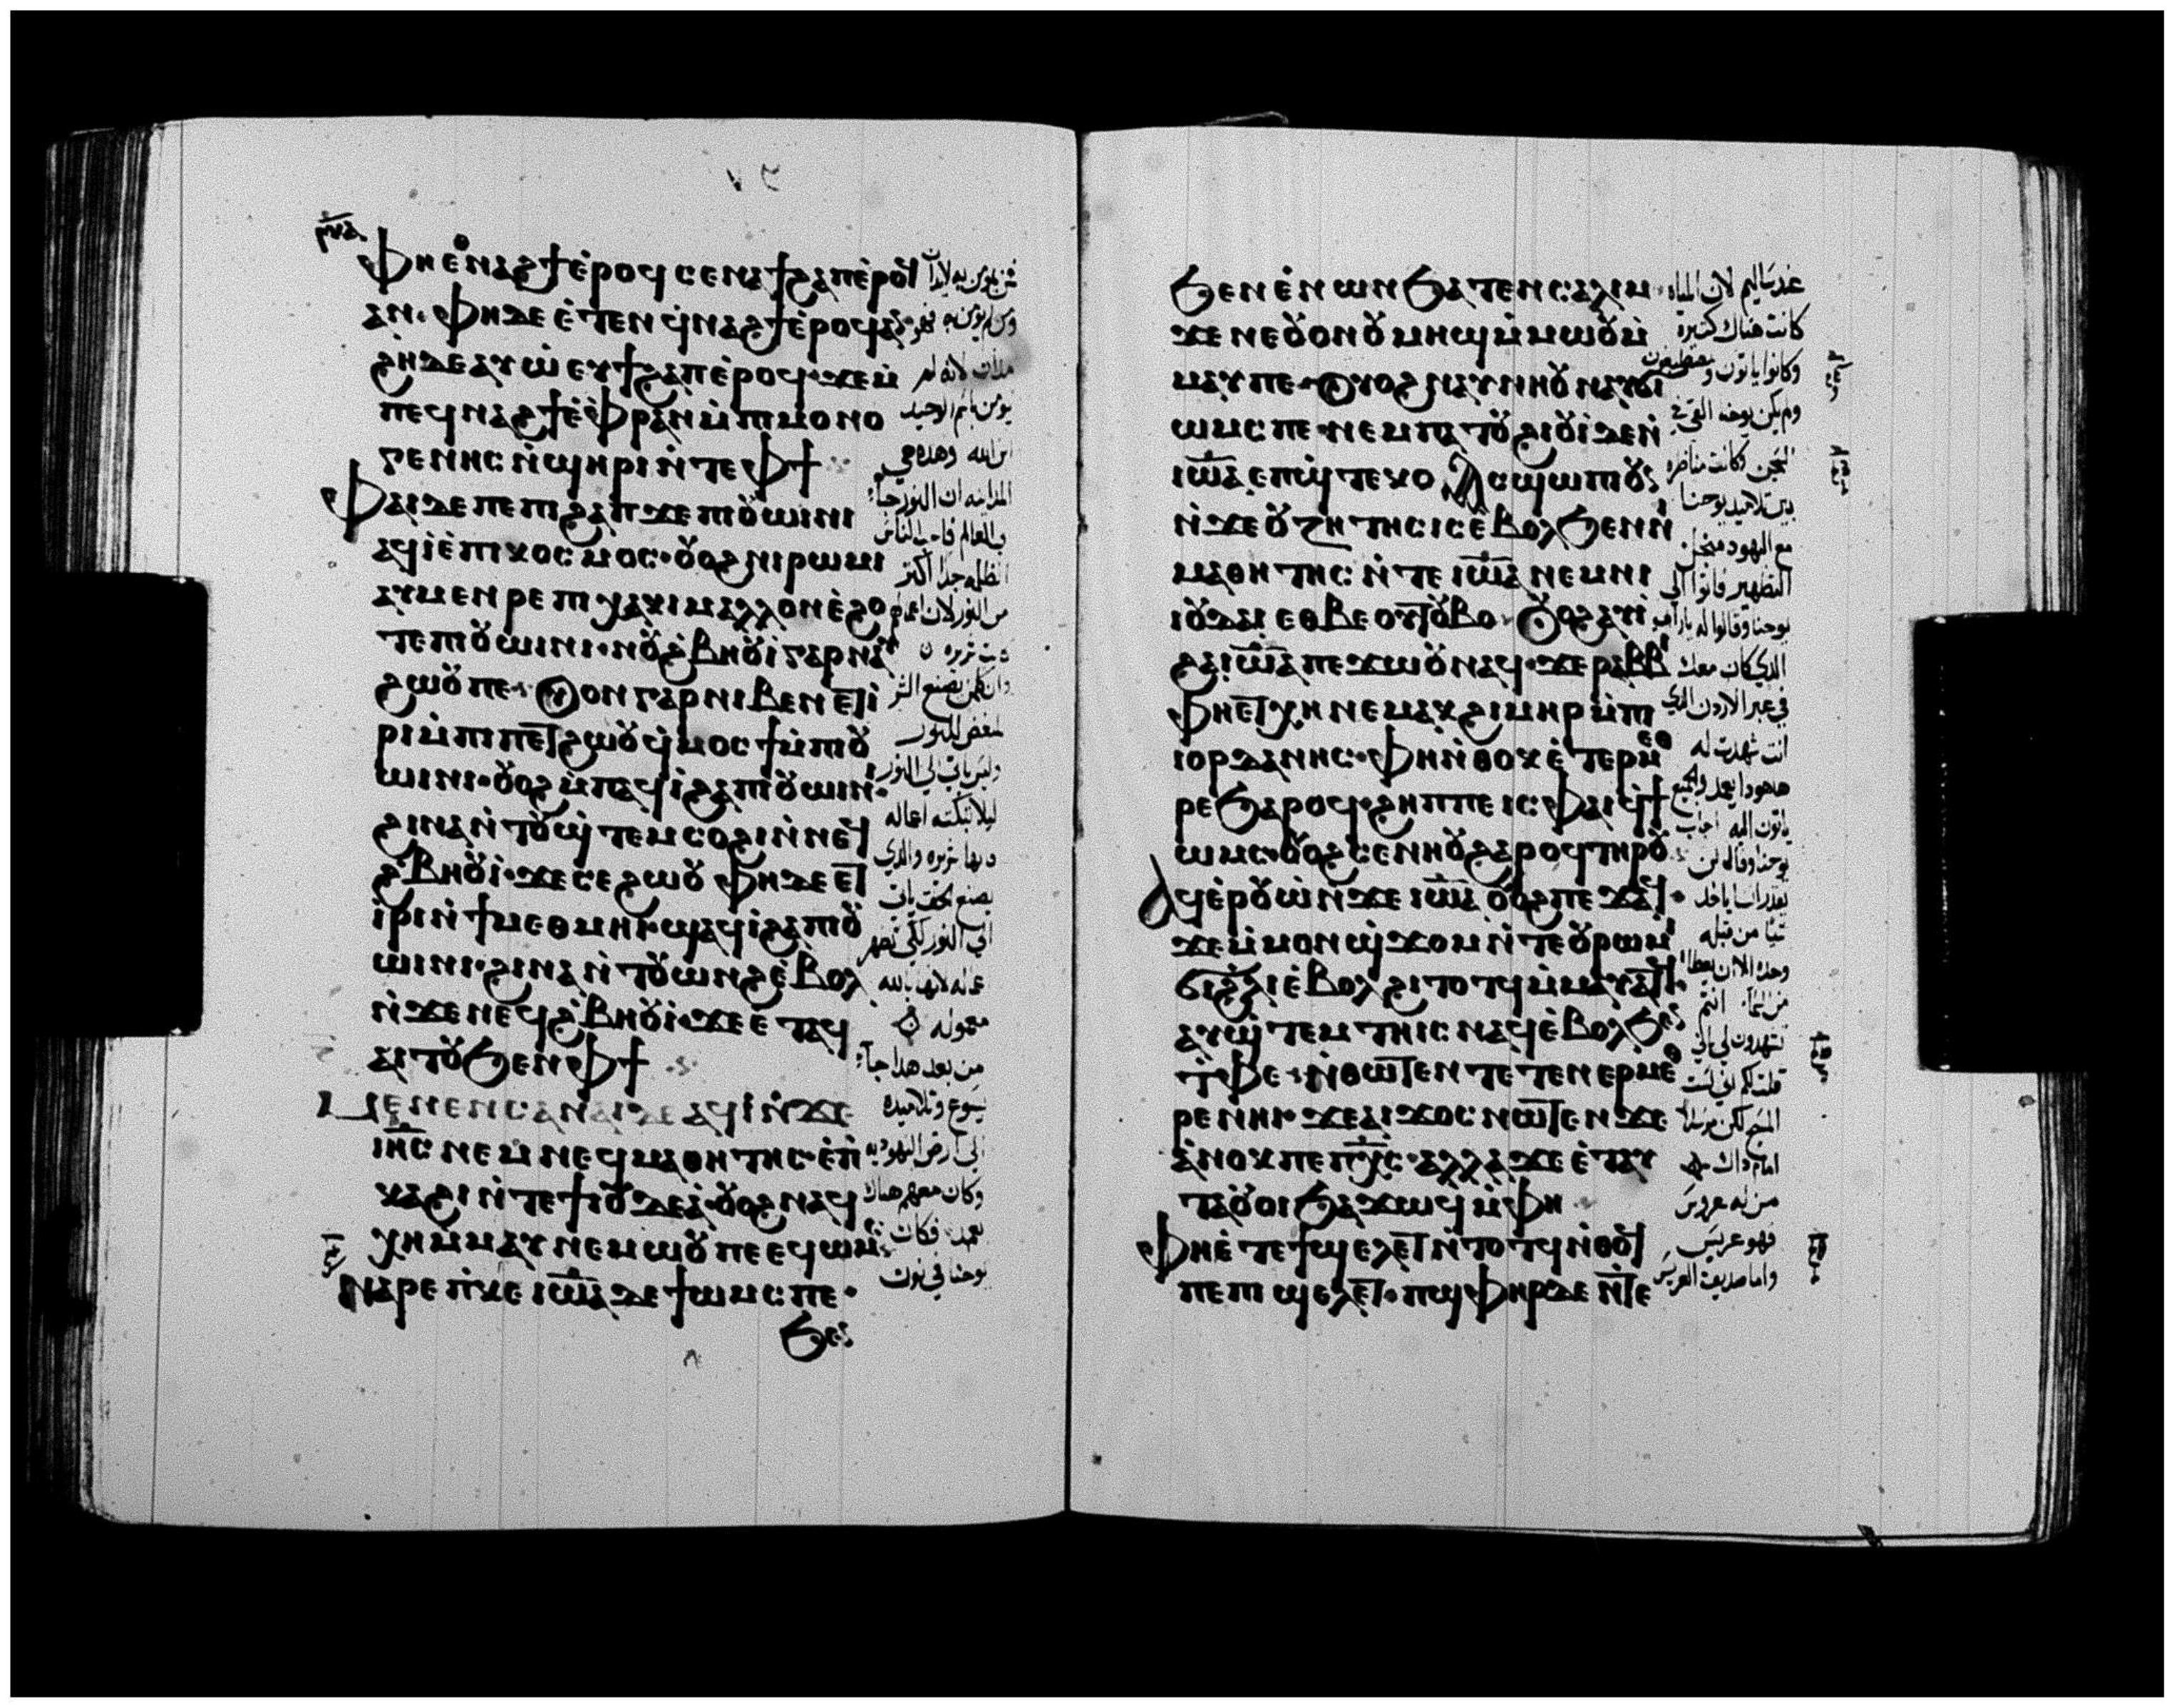 ⲫⲏⲉⲑⲛⲁϩϯⲉ̀ⲣⲟϥ ⲥⲉⲛⲁϯϩⲁⲡⲉ̀ⲣⲟϥ
ⲁⲛ· ⲫⲏⲇⲉ ⲉ̀ⲧⲉⲛϥ̀ⲛⲁϩϯⲉ̀ⲣⲟϥⲁⲛ
ϩⲏⲇⲉⲁⲩⲱ̀ⲉⲩϯϩⲁⲡⲉ̀ⲣⲟϥ· ϫⲉⲙ̀
ⲡⲉϥⲛⲁϩϯⲉ̀ⲫⲣⲁⲛⲙ̀ⲡⲓⲙⲟⲛⲟ
ⲅⲉⲛⲏⲥ ⲛ̀ϣⲏⲣⲓ ⲛ̀ⲧⲉⲫϯ
ⲫⲁⲓⲇⲉ ⲡⲉ ⲡⲓϩⲁⲡ ϫⲉ ⲡⲓⲟⲩⲱⲓⲛⲓ
ⲁϥⲓ̀ⲉ̀ⲡⲓⲕⲟⲥⲙⲟⲥ· ⲟⲩⲟϩ ⲛⲓⲣⲱⲙⲓ
ⲁⲩⲙⲉⲛⲣⲉ ⲡⲓⲭⲁⲕⲓ ⲙⲁⲗⲗⲟⲛ ⲉ̀ϩⲟ
ⲧⲉ ⲡⲓⲟⲩⲱⲓⲛⲓ· ⲛⲟⲩϩ̀ⲃⲏⲟⲩⲓ̀ ⲅⲁⲣ ⲛⲁⲩ
ϩⲱⲟⲩ ⲡⲉ· ⲟⲩⲟⲛ ⲅⲁⲣ ⲛⲓⲃⲉⲛ ⲉⲧⲓ̀
ⲣⲓ ⲙ̀ⲡⲓⲡⲉⲧϩⲱⲟⲩ ϥ̀ⲙⲟⲥϯ ⲙ̀ⲡⲓⲟⲩ
ⲱⲓⲛⲓ· ⲟⲩⲟϩ ⲙ̀ⲡⲁϥⲓ̀ ϩⲁ ⲡⲓⲟⲩⲱⲓⲛⲓ·
ϩⲓⲛⲁ ⲛ̀ⲧⲟⲩϣ̀ⲧⲉⲙⲥⲟϩⲓ ⲛ̀ⲛⲉϥ
ϩ̀ⲃⲏⲟⲩⲓ̀· ϫⲉ ⲥⲉϩⲱⲟⲩ ⲫⲏⲇⲉ ⲉⲧ
ⲓ̀ⲣⲓ ⲛ̀ϯⲙⲉⲑⲙⲏⲓ· ϣⲁϥⲓ̀ ϩⲁ ⲡⲓⲟⲩ
ⲱⲓⲛⲓ· ϩⲓⲛⲁ ⲛ̀ⲧⲟⲩⲱⲛϩ ⲉ̀ⲃⲟⲗ
ⲛ̀ϫⲉ ⲛⲉϥϩ̀ⲃⲏⲟⲩⲓ̀· ϫⲉ ⲉ̀ⲧⲁϥ
ⲁⲓⲧⲟⲩ ϧⲉⲛ ⲫϯ
ⲙⲉⲛⲉⲛⲥⲁ ⲛⲁⲓⲇⲉ ⲁϥⲓ̀ ⲛ̀ϫⲉ
ⲓⲏ̅ⲥ̅ ⲛⲉⲙ ⲛⲉϥⲙⲁⲑⲏⲧⲏⲥ· ⲉ̀ⲡ̀
ⲕⲁϩⲓ ⲛ̀ⲧⲉ ϯⲓⲟⲩⲇⲉⲁ̀· ⲟⲩⲟϩ ⲛⲁϥ
ⲭⲏ ⲙ̀ⲙⲁⲩ ⲛⲉⲙⲱⲟⲩ ⲡⲉ ⲉϥⲱⲙⲥ
ⲛⲁⲣⲉ ⲡ̀ⲕⲉ ⲓⲱ̅ⲁ̅ ⲇⲉ ϯⲱⲙⲥ ⲡⲉ·
ϧⲉⲛ
ومن لم يؤمن به
يؤمن باسم الوحيد
ابن الله وهذه هي
المداينه ان النور جاء
من النور لان اعمالهم
وليس ياتي الي النور
ليلا تبكته اعماله
معموله
من بعد هدا جاء
يسوع وتلاميده
الي ارض اليهوديه
وكان معهم هناك
يوحنا في نون
ϧⲉⲛ ⲉ̀ⲛⲱⲛ ϧⲁⲧⲉⲛ ⲥⲁⲗⲓⲙ·
ϫⲉ ⲛⲉ ⲟⲩⲟⲛ ⲟⲩⲙⲏϣ ⲙ̀ⲙⲱⲟⲩ ⲙ̀
ⲙⲁⲩ ⲡⲉ· ⲟⲩⲟϩ ⲛⲁⲩⲛⲏⲟⲩ ⲛⲁⲩϭⲓ
ⲱⲙⲥ ⲡⲉ· ⲛⲉ ⲙ̀ⲡⲁⲧⲟⲩϩⲓⲟⲩⲓ̀ ⲇⲉ ⲛ̀
ⲓⲱ̅ⲁ̅ ⲉⲡϣ̀ⲧⲉⲕⲟ ⲁⲥϣⲱⲡⲓ ⲟⲩⲛ
ⲛ̀ϫⲉ ⲟⲩⲍⲏⲧⲏⲥⲓⲥ ⲉ̀ⲃⲟⲗ ϧⲉⲛ ⲛⲓ
ⲙⲁⲑⲏⲧⲏⲥ ⲛ̀ⲧⲉ ⲓⲱ̅ⲁ̅ ⲛⲉⲙ ⲛⲓ
ⲓⲟⲩⲇⲁⲓ ⲉⲑⲃⲉ ⲟⲩⲧⲟⲩⲃⲟ· ⲟⲩⲟϩ ⲁⲩⲓ̀
ϩⲁ ⲓⲱ̅ⲁ̅ ⲡⲉϫⲱⲟⲩ ⲛⲁϥ· ϫⲉ ⲣⲁⲃⲃⲓ
ⲫⲏⲉⲧⲭⲏ ⲛⲉⲙⲁⲕ ϩⲓⲙⲏⲣ ⲙ̀ⲡⲓ
ⲓⲟⲣⲇⲁⲛⲏⲥ· ⲫⲏ ⲛ̀ⲑⲟⲕ ⲉ̀ⲧⲉⲣⲙⲉⲑ
ⲣⲉ ϧⲁⲣⲟϥ· ϩⲏⲡⲡⲉ ⲓⲥ ⲫⲁⲓ ϥ̀ϯ
ⲱⲙⲥ· ⲟⲩⲟϩ ⲥⲉⲛⲏⲟⲩ ϩⲁⲣⲟϥ ⲧⲏⲣⲟⲩ
ⲁϥⲉ̀ⲣⲟⲩⲱ̀ ⲛ̀ϫⲉ ⲓⲱ̅ⲁ̅ ⲟⲩⲟϩ ⲡⲉϫⲁϥ·
ϫⲉ ⲙ̀ⲙⲟⲛ ϣ̀ϫⲟⲙ ⲛ̀ⲧⲉ ⲟⲩⲣⲱⲙⲓ
ϭⲓ ϩ̀ⲗⲓ ⲉ̀ⲃⲟⲗ ϩⲓⲧⲟⲧϥ ⲙ̀ⲙⲁⲩⲁⲧϥ·
ⲁⲩϣ̀ⲧⲉⲙⲧⲏⲓⲥ ⲛⲁϥ ⲉ̀ⲃⲟⲗ ϧⲉⲛ
ⲧ̀ⲫⲉ· ⲛ̀ⲑⲱⲧⲉⲛ ⲧⲉⲧⲉⲛⲉⲣⲙⲉⲑ
ⲣⲉ ⲛⲏⲓ· ϫⲉ ⲁⲓϫⲟⲥ ⲛⲱⲧⲉⲛ ϫⲉ
ⲁ̀ⲛⲟⲕ ⲡⲉ ⲡⲭ̅ⲥ̅· ⲁⲗⲗⲁ ϫⲉ ⲉ̀ⲧⲁⲩ
ⲧⲁⲟⲩⲟⲓ ϧⲁϫⲱϥ ⲙ̀ⲫⲏ
ⲫⲏⲉ̀ⲧⲉ ϯϣⲉⲗⲉⲧ ⲛ̀ⲧⲟⲧϥ ⲛ̀ⲑⲟϥ
ⲡⲉ ⲡⲓϣⲉⲗⲉⲧ· ⲡϣ̀ⲫⲏⲣ ⲇⲉ ⲛ̀ⲧⲉ
عند ساليم لان المياه
كانت هناك كثيره
وكانوا ياتون ويعتمدون
ولم يكن يوحنا القي في
السجن وكانت مناظره
بين تلاميد يوحنا
مع اليهود من اجل
التطهير فاتوا الي
يوحنا وقالوا له يا راب
الدي كان معك
في عبر الاردن الدي
انت شهدت له
هاهودا يعمد والجميع
ياتون اليه اجاب
يوحنا وقال لن
يقدر انسان ياخد
شيا من قبله
وحده الا ان يعطا
من السما انتم
تشهدون لي اني
قلت لكم اني لست
المسيح لكن مرسل
امام داك
من له عروس
فهو عريس
واما صديق العريس